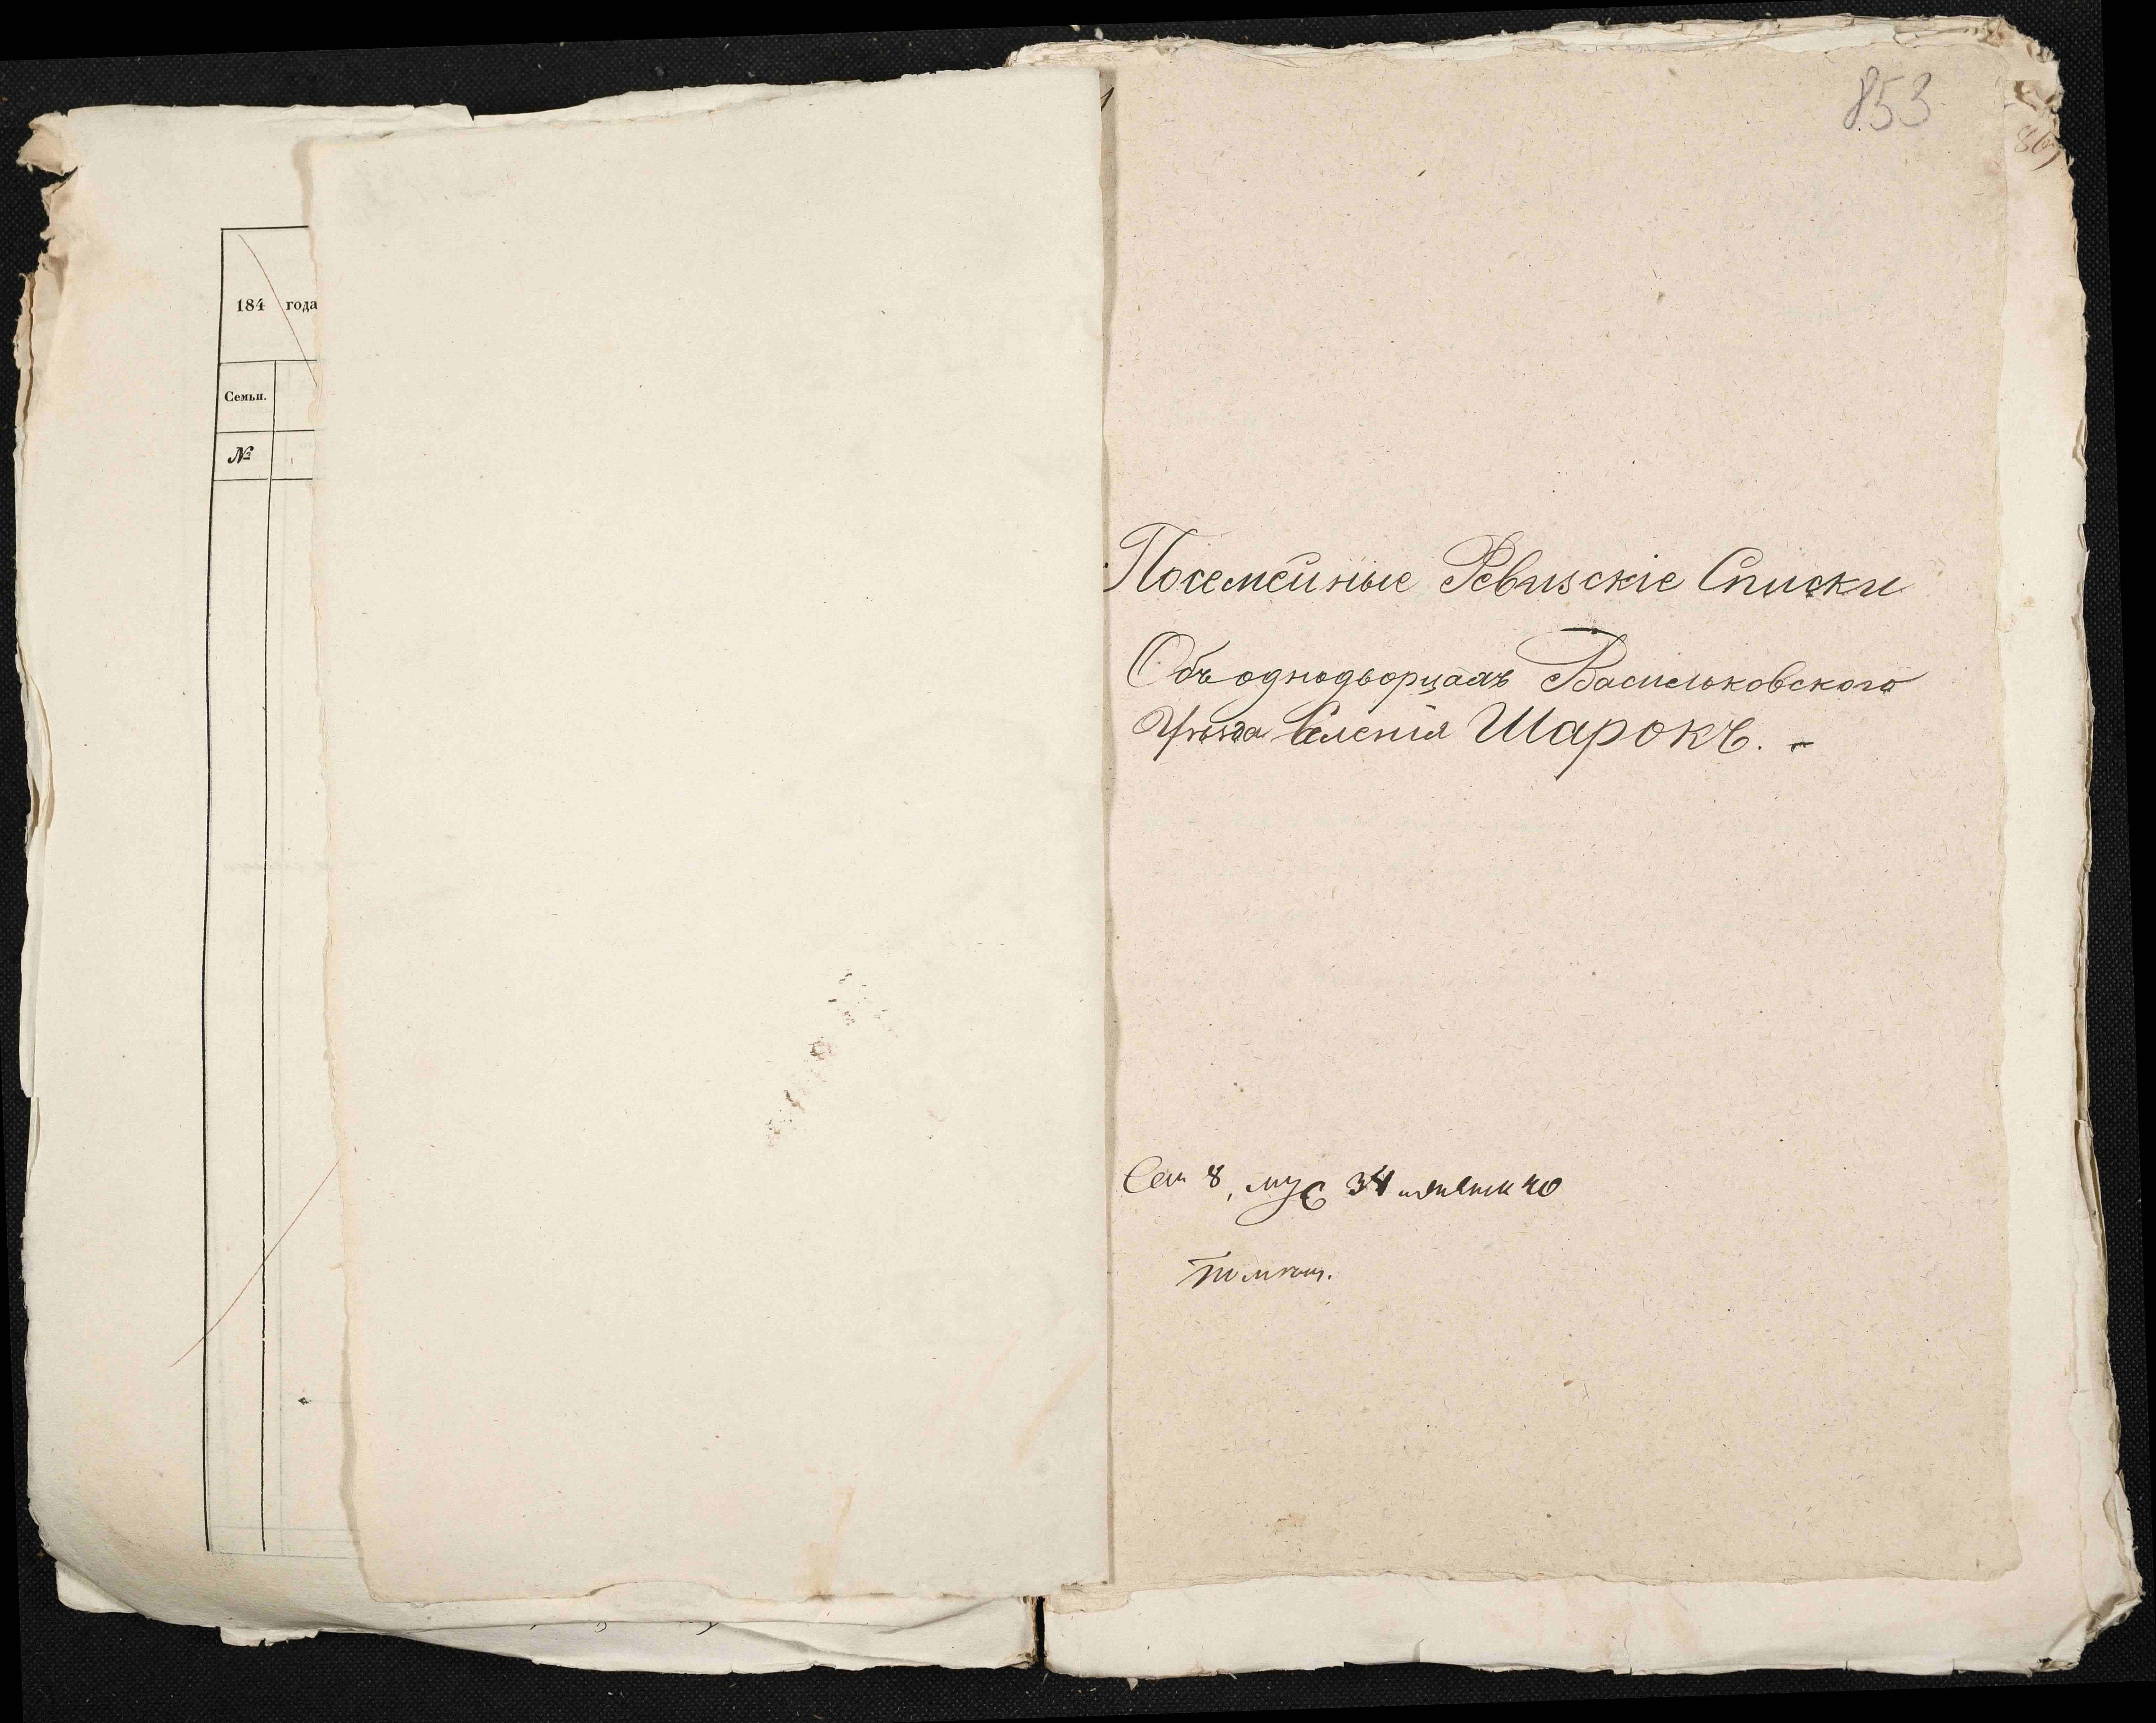 184 года
Семьи.
№
853
Посемейные Ревизскіе Списки
Объ однодворцахъ Васильковскаго
Уѣзда Селенія Шарокъ. -
Сем 8, муж 34 женск 40